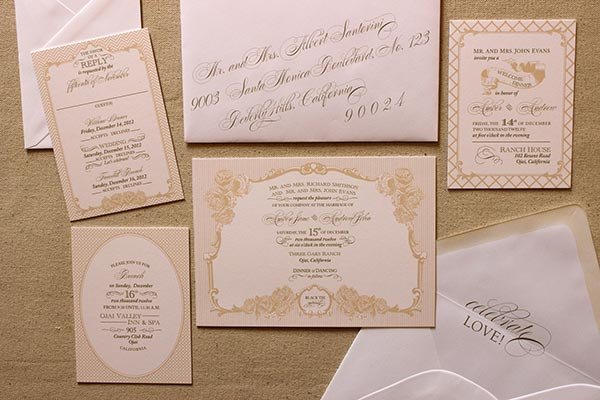 THE FAVOR OF A
REPLY
is requested by the
fifteenth of November
Welcome Dinner
Friday, December 14, 2012
ACCEPTS DECLINES
WEDDING
Saturday, December 15, 2012
ACCEPTS DECLINES
Farewell Brunch
Sunday, December 16, 2012
ACCEPTS DECLINES
Mr. and Mrs. Albert Santorini
9003 Santa Monica Boulevard, No. 123
Beverly Hills, California
90024
MR. AND MRS. JOHN EVANS
invite you to a
WELCOME
DINNER
in honor of
Amber Andrew
FRIDAY, THE 14th OF DECEMBER
TWO THOUSAND TWELVE
RANCH HOUSE
102 Resent Road
Ojai, California
MR. AND MRS. RICHARD SMITHSON
AND MR. AND MRS. JOHN EVANS
request the pleasure
OF YOUR COMPANY AT THE MARRIAGE OF
Amber Jane Andrew John
SATURDAY, THE 15th OF DECEMBER
two thousand twelve
at six o'clock in the evening
THREE OAKS RANCH
Ojai, California
DINNER & DANCING
to follow
BLACK TIE
PLEASE JOIN US FOR
Brunch
SUNDAY
DECEMBER
16th
two thousand twelve
FROM 9:00 UNTIL 11:00 AM
OJAI VALLEY
INN & SPA
905
Country Club Road
Ojai
CALIFORNIA
celebrate
LOVE!